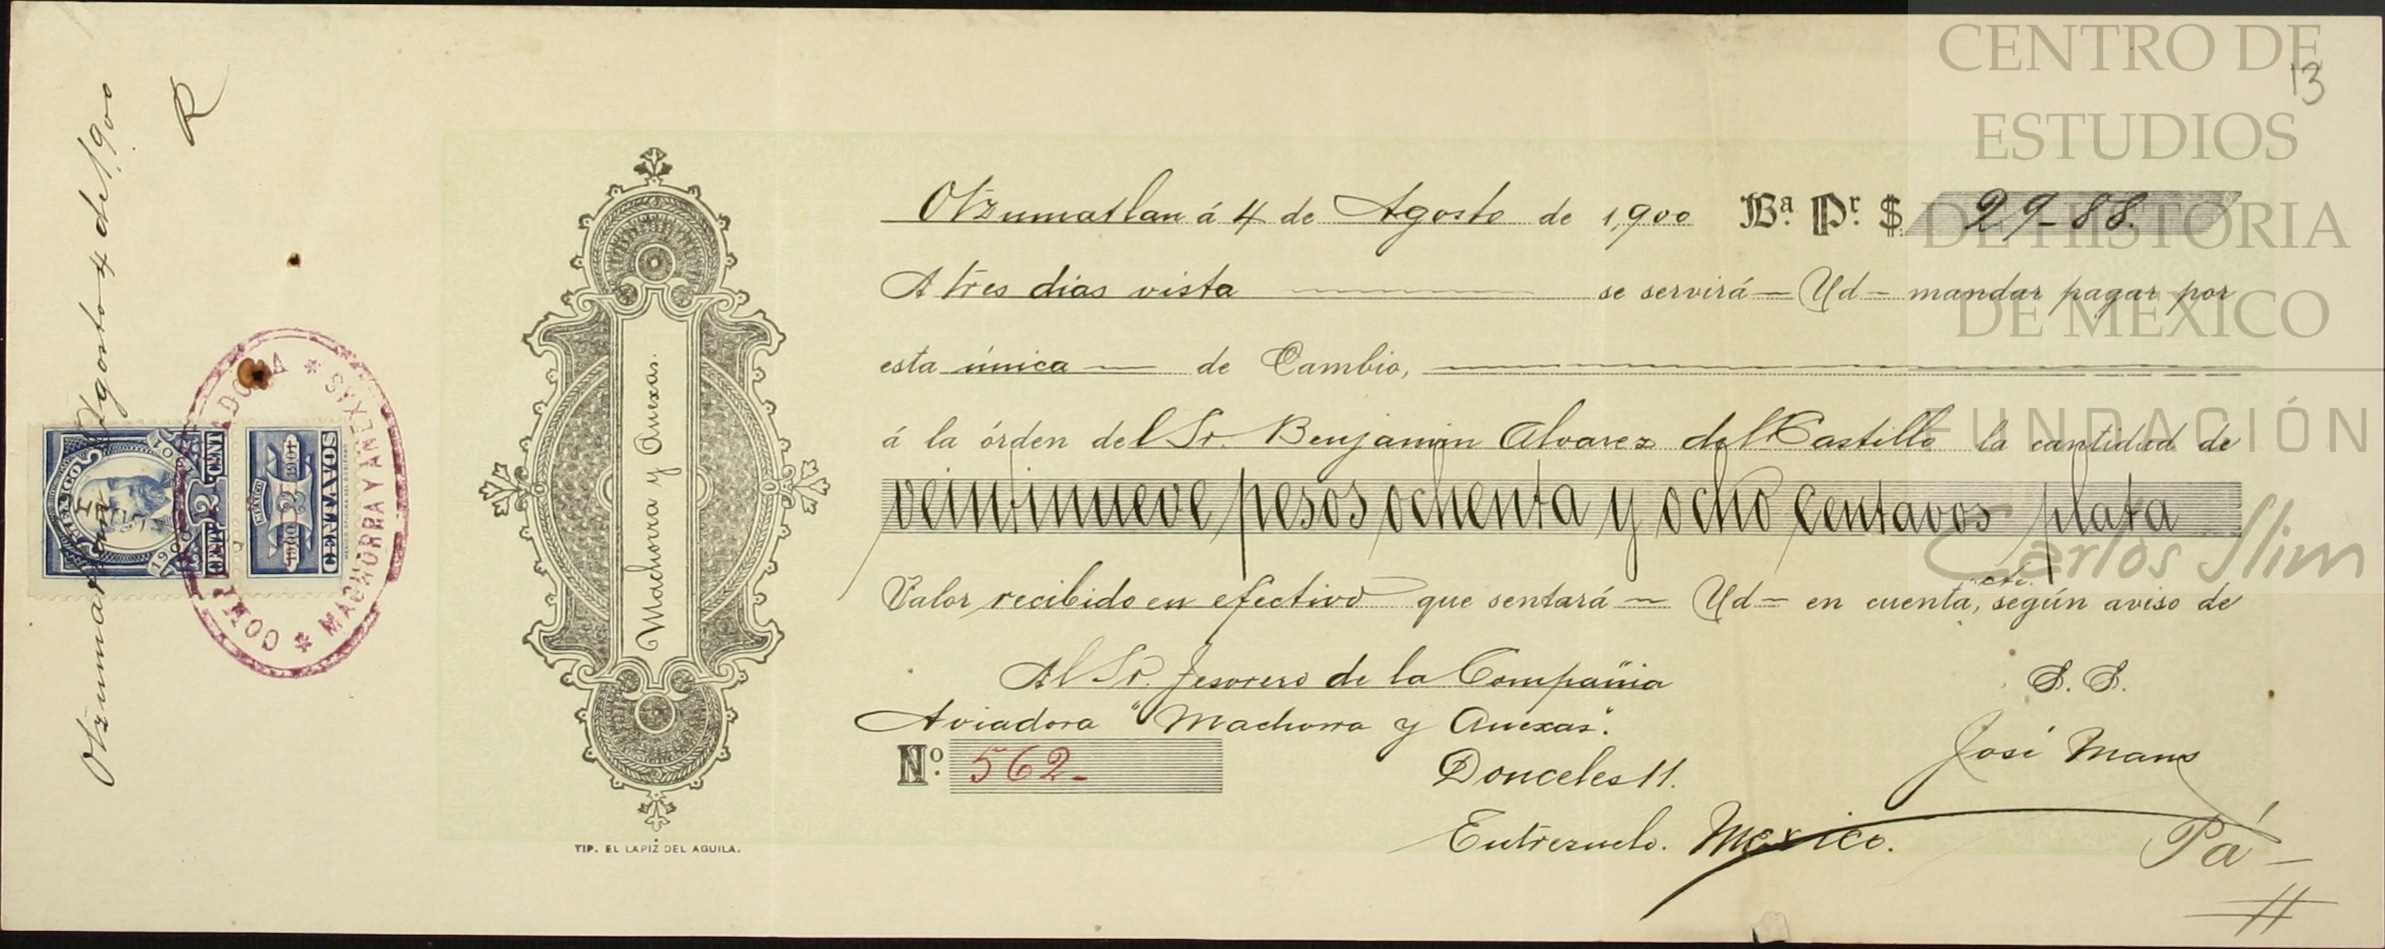 Otzumatlan Agosto 4 de 1,900
R
COMPAÑIA AVIADORA * MACHORRA Y ANEXAS *
MEXICO
1900 1901
2 CENT
CENT 2
MEXICO
1900 2 1901
CENTAVOS
Machorra y Anexas.
TIP. EL LAPIZ DEL AGUILA.
13
Otzumatlan á 4 de Agosto de 1,900 Bª. Pr. $ 29-88
A tres dias vista se servirá Ud mandar pagar por
esta única de Cambio,
á la órden del Sr. Benjamin Alvarez del Castillo la cantidad de
veintinueve pesos ochenta y ocho centavos plata
Valor recibido en efectivo que sentará Ud en cuenta, según aviso de
Al Sr. Tesorero de la Compañia S. S.
Aviadora "Machorra y Anexas".
Nº. 562- Donceles 11. José
Entresuelo. Mexico. Pá
CENTRO DE
ESTUDIOS
DE HISTORIA
DE MÉXICO
FUNDACIÓN
Carlos Slim